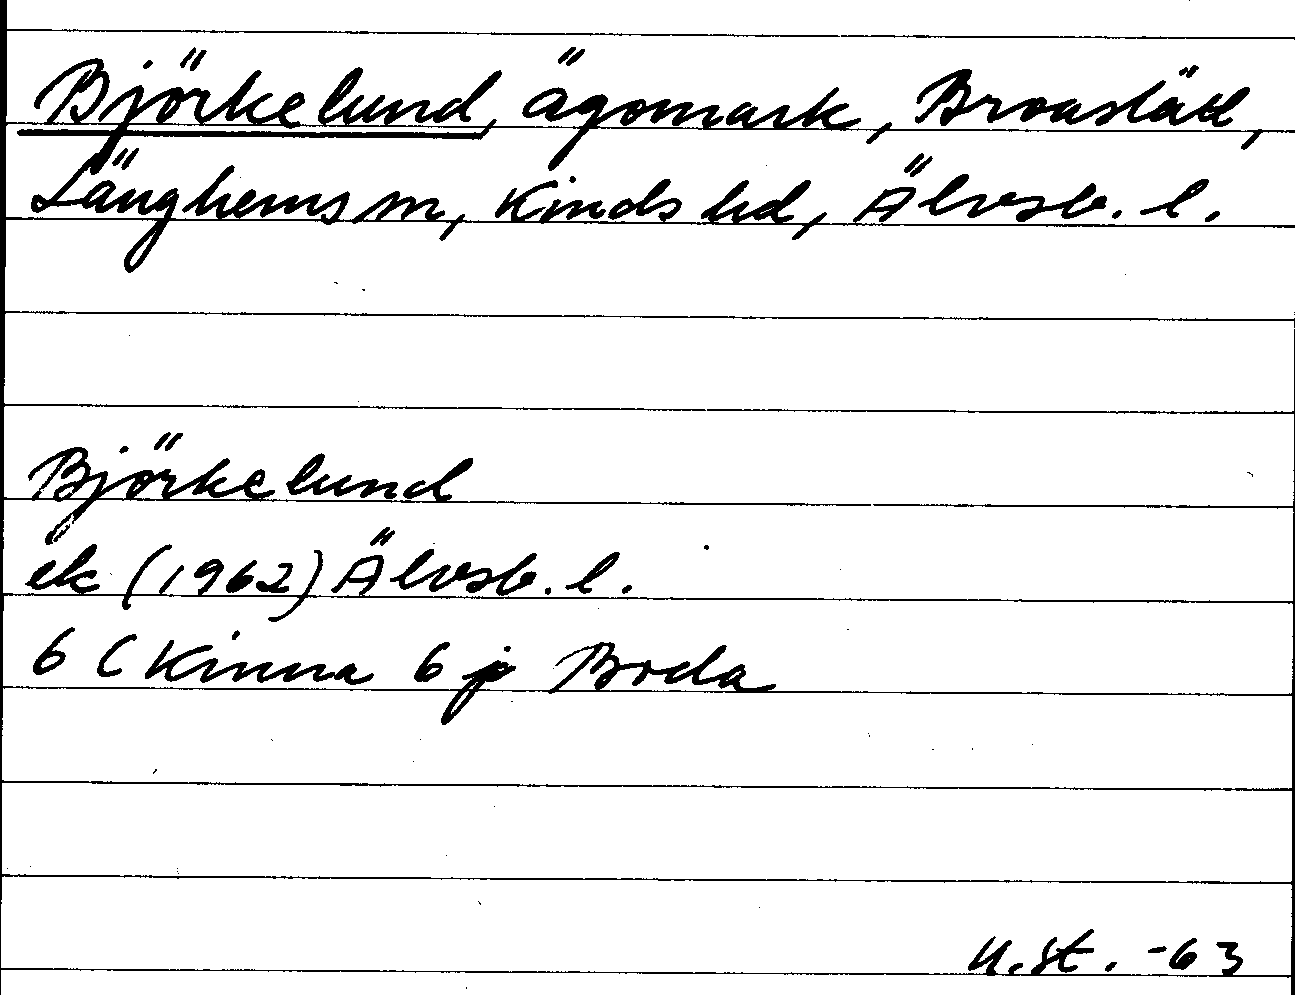 Björkelund, ägomark, Broaslätt,
Länghems sn, Kinds hd, Älvsb. l.
Björkelund
ek (1962) Älvsb. l.
6 C Kinna 6 j Broda
U.St. -63